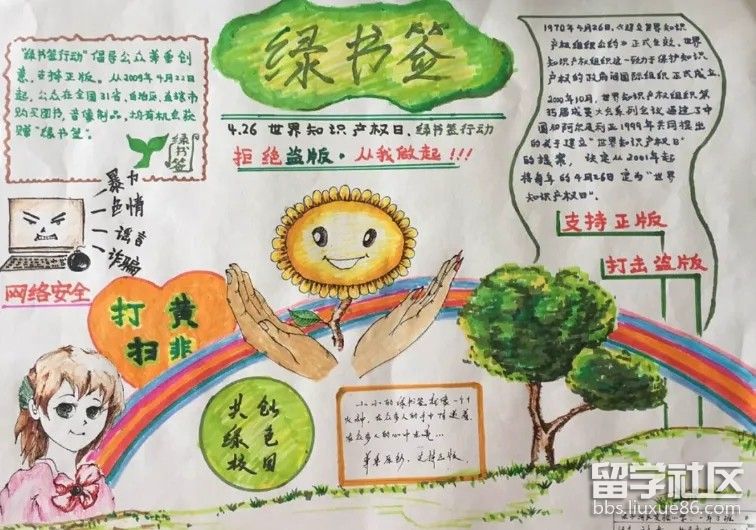 绿书签
"绿书签行动"倡导公众尊重创
意，支持正版。从2009年4月22日
起，公众在全国31省、自治区、直辖市
购买图书、音像制品，均有机会获
赠"绿书签"。
绿书签
4.26 世界知识产权日、绿书签行动
拒绝盗版·从我做起!!!
1970年4月26日，《建立世界知识
产权组织公约》正式生效，世界
知识产权组织这一致力于保护知识
产权的政府间国际组织正式成立。
2000年10月，世界知识产权组织第
35届成员大会系列会议通过了中
国和阿尔及利亚1999年共同提出
的关于建立"世界知识产权日"
的提案，决定从2001年起
将每年的4月26日定为"世界
知识产权日"。
支持正版
打击盗版
暴力
色情
谣言
诈骗
网络安全
打黄
扫非
共创
绿色
校园
小小的绿书签就像一个个
火种，在众多人的手中传递着，
在众多人的心中
尊重原创，支持正版。
留学社区
bbs.liuxue86.com